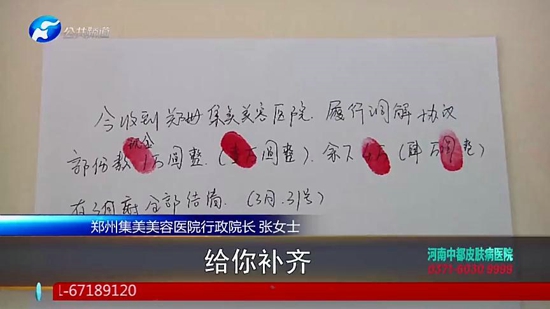 公共频道
今收到郑州集美美容医院履行调解协议
现金
部份款1万圆整（壹万圆整）.余下4万（肆万圆整）
在3月底全部结清.（3月.31号）
郑州集美美容医院行政院长 张女士
给你补齐
河南中都皮肤病医院
0371-6930 9999
L-67189120